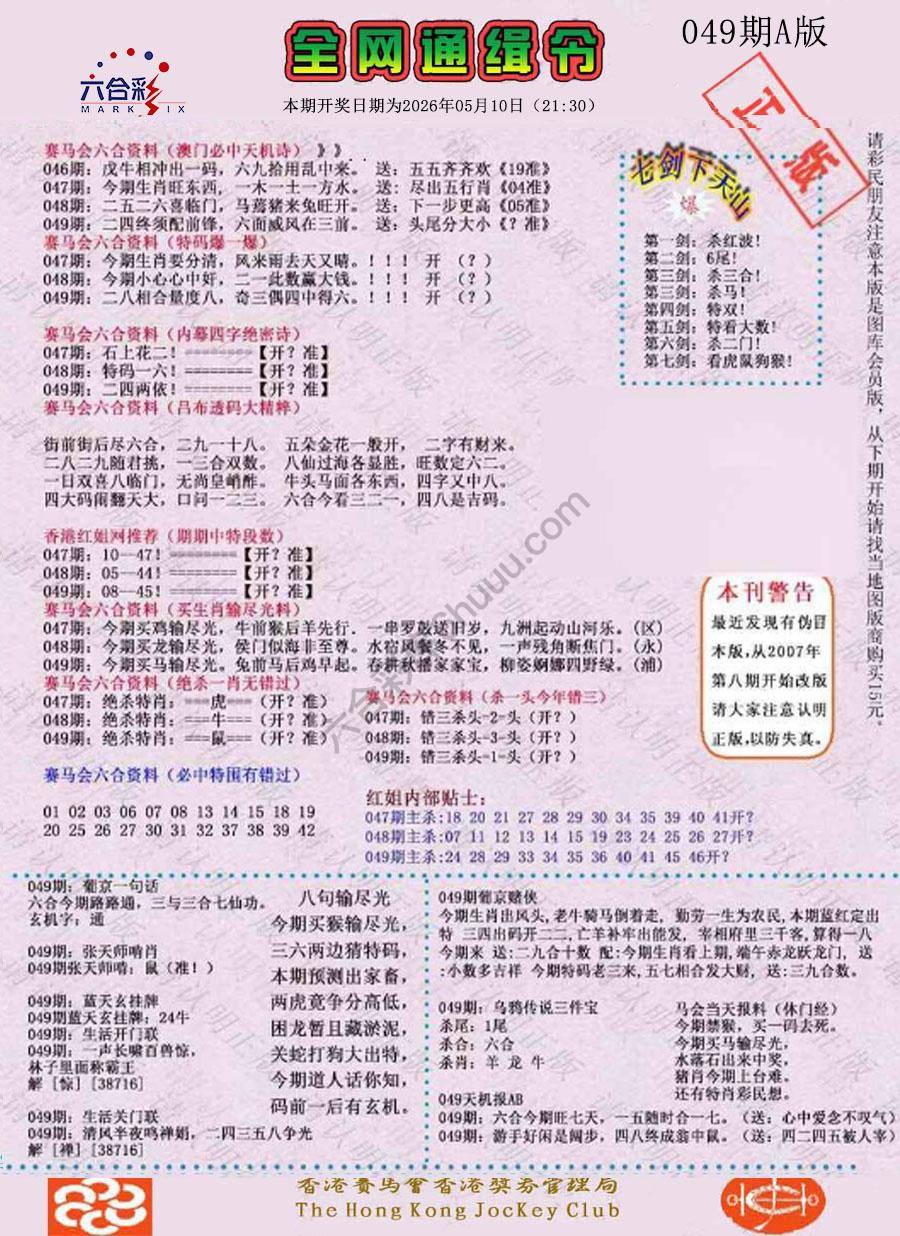 049期A版
全网通缉令
六合彩
MARK SIX
本期开奖日期为2026年05月10日（21:30）
正版
赛马会六合资料（澳门必中天机诗）》》
046期：戊牛相冲出一码，六九拾用乱中来。 送：五五齐齐欢《19准》
047期：今期生肖旺东西，一木一土一方水。 送：尽出五行肖《04准》
048期：二五二六喜临门，马蔫猪来兔旺开。 送：下一步更高《05准》
049期：二四终须配前锋，六面威风在三前。 送：头尾分大小《？准》
赛马会六合资料（特码爆一爆）
047期：今期生肖要分清，风来雨去天又晴。！！！ 开 （？）
048期：今期小心心中好，二一此数赢大钱。！！！ 开 （？）
049期：二八相合量度八，奇三偶四中得六。！！！ 开 （？）
赛马会六合资料（内幕四字绝密诗）
047期：石上花二！========【开？准】
048期：特码一六！========【开？准】
049期：二四两依！========【开？准】
赛马会六合资料（吕布透码大精粹）
街前街后尽六合，二九一十八。 五朵金花一般开， 二字有财来。
二八二九随君挑，一三合双数。 八仙过海各显胜，旺数定六二。
一日双喜八临门，无尚皇峭酢。 牛头马面各东西，四字又中八。
四大码闹翻天大，口问一二三。 六合今看三二一，四八是吉码。
七剑下天山
爆
第一剑：杀红波！
第二剑：6尾！
第三剑：杀三合！
第三剑：杀马！
第四剑：特双！
第五剑：特看大数！
第六剑：杀二门！
第七剑：看虎鼠狗猴！
请彩民朋友注意本版是图库会员版，从下期开始请找当地图版商购买15元。
香港红姐网推荐（期期中特段数）
047期：10--47！========【开？准】
048期：05--44！========【开？准】
049期：08--45！========【开？准】
赛马会六合资料（买生肖输尽光料）
047期：今期买鸡输尽光，牛前猴后羊先行．一串罗鼓送旧岁，九洲起动山河乐。（区）
048期：今期买龙输尽光，侯门似海非至尊。水宿风餐冬不见，一声残角断焦门。（永）
049期：今期买马输尽光。兔前马后鸡早起。春耕秋播家家宝，柳姿婀娜四野绿。（浦）
赛马会六合资料（绝杀一肖无错过）
047期：绝杀特肖：===虎===（开？准）
048期：绝杀特肖：===牛===（开？准）
049期：绝杀特肖：===鼠===（开？准）
赛马会六合资料（杀一头今年错三）
047期：错三杀头-2-头（开？）
048期：错三杀头-3-头（开？）
049期：错三杀头-1-头（开？）
本刊警告
最近发现有伪冒
本版，从2007年
第八期开始改版
请大家注意认明
正版，以防失真。
赛马会六合资料（必中特围有错过）
01 02 03 06 07 08 13 14 15 18 19
20 25 26 27 30 31 32 37 38 39 42
红姐内部贴士：
047期主杀:18 20 21 27 28 29 30 34 35 39 40 41开？
048期主杀:07 11 12 13 14 15 19 23 24 25 26 27开？
049期主杀:24 28 29 33 34 35 36 40 41 45 46开？
049期：葡京一句话
六合今期路路通，三与三合七仙功。
玄机字：通
049期：张天师啃肖
049期张天师啃：鼠（准！）
049期：蓝天玄挂牌
049期蓝天玄挂牌：24牛
049期：生活开门联
049期：一声长啸百兽惊，
林子里面称霸王
解［惊］[38716]
049期：生活关门联
049期：清风半夜鸣禅娟，二四三五八争光
解［禅］[38716]
八句输尽光
今期买猴输尽光，
三六两边猜特码，
本期预测出家畜，
两虎竞争分高低，
困龙暂且藏淤泥，
关蛇打狗大出特，
今期道人话你知，
码前一后有玄机。
049期葡京赌侠
今期生肖出风头，老牛骑马倒着走， 勤劳一生为农民，本期蓝红定出
特 三四出码开二二，亡羊补牢出能发， 宰相府里三千客，算得一八
今期来 送：二九合十数 配：今期生肖看上期，端午赤龙跃龙门， 送
：小数多吉祥 今期特码老三来，五七相合发大财， 送：三九合数。
049期：乌鸦传说三件宝
杀尾：1尾
杀合：六合
杀肖：羊 龙 牛
马会当天报料（休门经）
今期禁猴，买一码去死。
今期买马输尽光，
水落石出来中奖，
猪肖今期上台难。
还有特肖彩民想。
049天机报AB
049期：六合今期旺七天，一五随时合一七。（送：心中爱念不叹气）
049期：游手好闲是阔步，四八终成翁中鼠。（送：四二四五被人宰）
香港赛马會香港獎券管理局
The Hong Kong JocKey Club